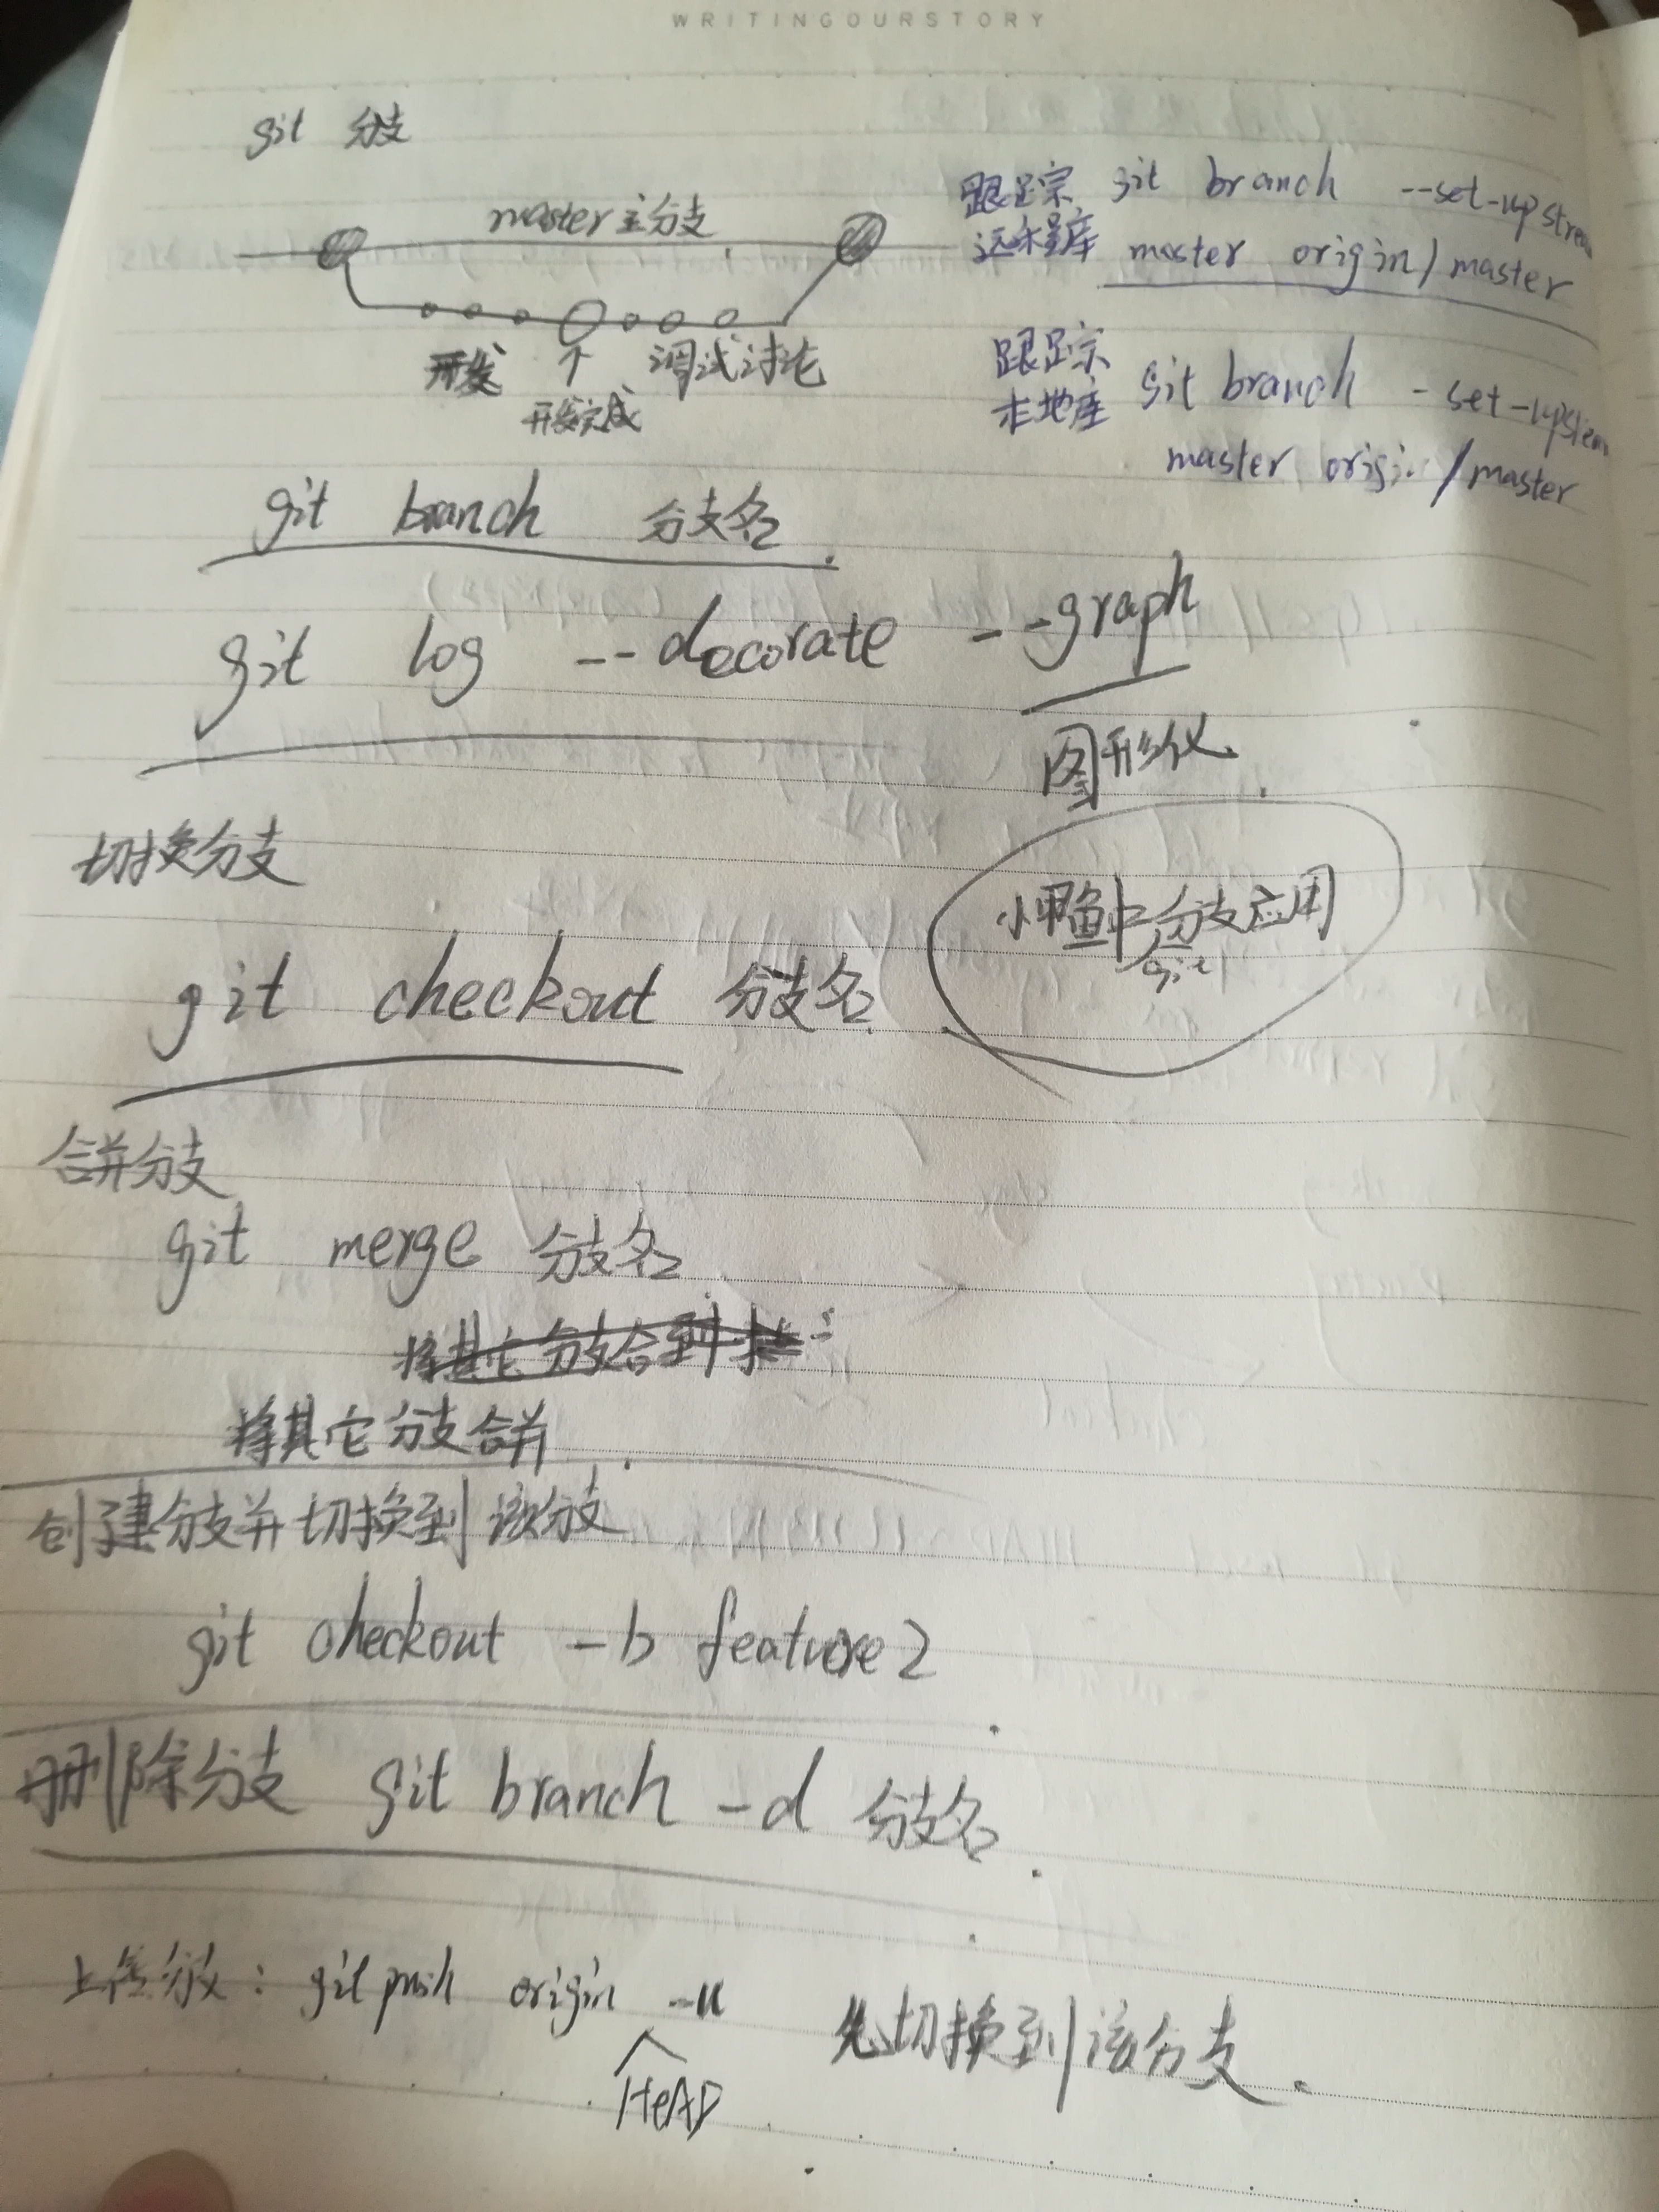 WRITINGOURSTORY
git 分支
master 主分支
开发 开发完成 调试讨论
跟踪远程库 git branch --set-upstream
master origin/master
跟踪本地库 git branch -set-upstream
master origin/master
git branch 分支名
git log --decorate --graph
图形化
切换分支
小甲鱼中分支应用
git
git checkout 分支名
合并分支
git merge 分支名
将其它分支合并
创建分支并切换到该分支
git checkout -b feature2
删除分支 git branch -d 分支名
上传分支: git push origin -u 先切换到该分支.
HEAD